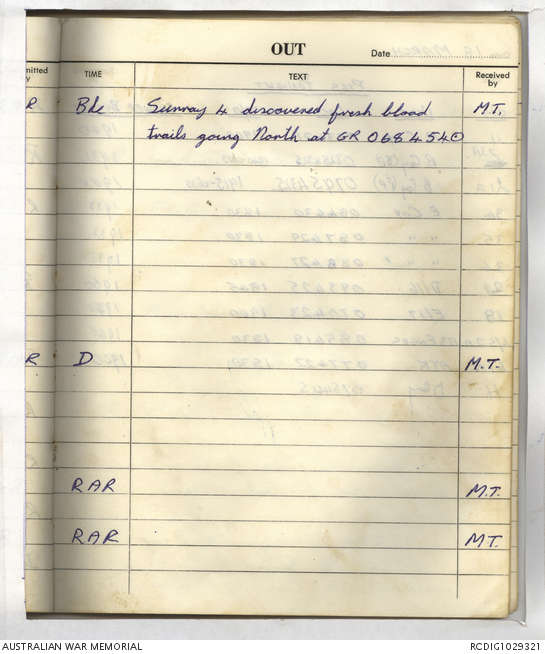 OUT
Date
mitted
y
TIME
TEXT
Received
by
R Bde Sunray 4 discovered fresh blood M.T.
trails going North at GR 068454⊙
R D M.T.
RAR M.T.
RAR M.T.
AUSTRALIAN WAR MEMORIAL
RCDIG1029321